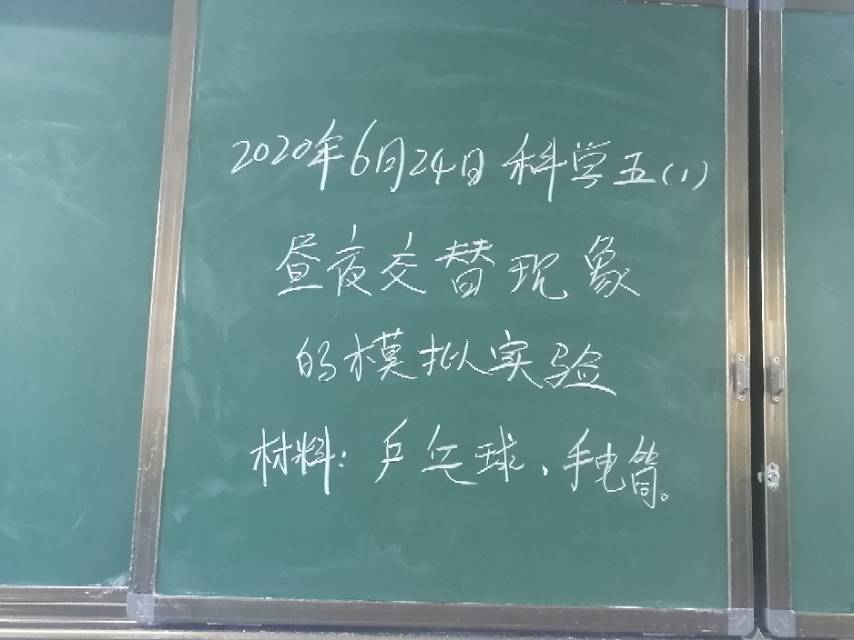 2020年6月24日 科学五(1)
昼夜交替现象
的模拟实验
材料：乒乓球、手电筒。